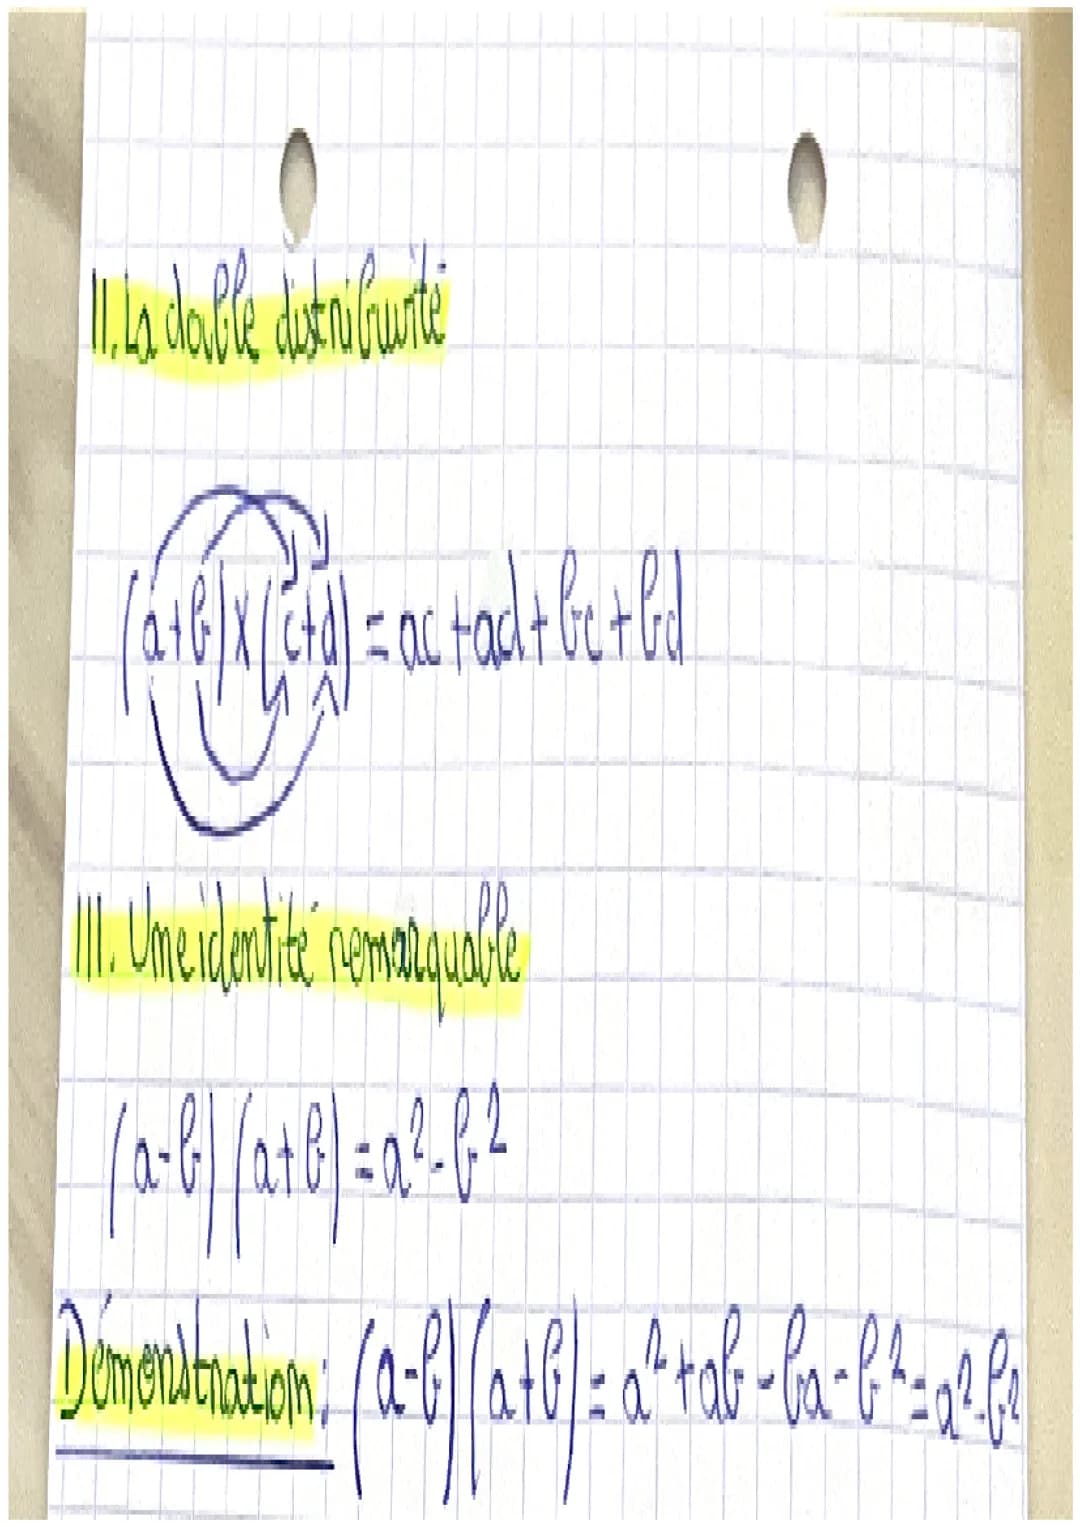 II. La double distributivité
(a+b)×(c+d) = ac + ad + bc + bd
III. Une identité remarquable
(a-b)(a+b) = a² - b²
Démonstration : (a-b)(a+b) = a² + ab - ba - b² = a² - b²